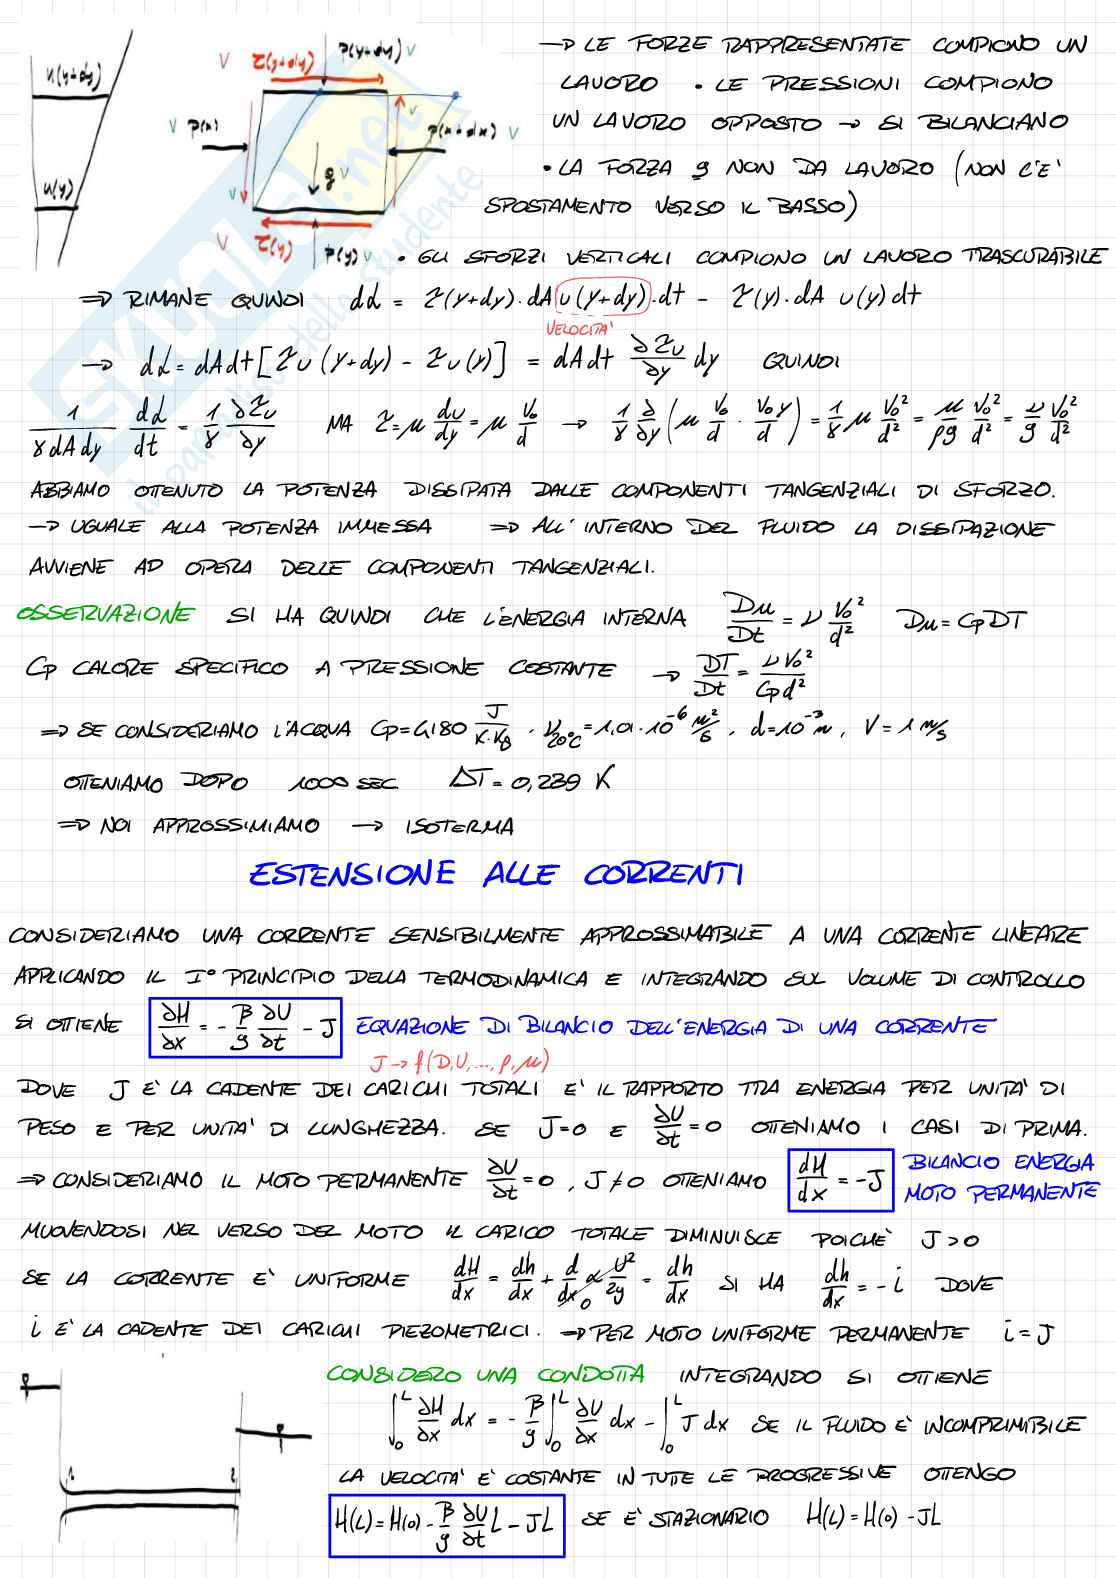 → LE FORZE RAPPRESENTATE COMPIONO UN
LAVORO • LE PRESSIONI COMPIONO
UN LAVORO OPPOSTO → SI BILANCIANO
• LA FORZA g NON DA LAVORO (NON C'E'
SPOSTAMENTO VERSO IL BASSO)
• GLI SFORZI VERTICALI COMPIONO UN LAVORO TRASCURABILE
u(y+dy)
u(y)
V τ(y+dy) p(y+dy) V
V p(x) p(x+dx) V
V g V V
V τ(y) p(y) V
⇒ RIMANE QUINDI dL = τ(y+dy)·dA u(y+dy)·dt - τ(y)·dA u(y)dt
VELOCITA'
→ dL = dA dt [τu(y+dy) - τu(y)] = dA dt ∂τu/∂y dy QUINDI
1/(γ dA dy) dL/dt = 1/γ ∂τu/∂y MA τ = μ du/dy = μ V₀/d → 1/γ ∂/∂y (μ V₀/d · V₀y/d) = 1/γ μ V₀²/d² = μ/ρg V₀²/d² = ν/g V₀²/d²
ABBIAMO OTTENUTO LA POTENZA DISSIPATA DALLE COMPONENTI TANGENZIALI DI SFORZO.
→ UGUALE ALLA POTENZA IMMESSA ⇒ ALL'INTERNO DEL FLUIDO LA DISSIPAZIONE
AVVIENE AD OPERA DELLE COMPONENTI TANGENZIALI.
OSSERVAZIONE SI HA QUINDI CHE L'ENERGIA INTERNA Du/Dt = ν V₀²/d² Du = Cp DT
Cp CALORE SPECIFICO A PRESSIONE COSTANTE → DT/Dt = νV₀²/Cpd²
⇒ SE CONSIDERIAMO L'ACQUA Cp = 4180 J/K·Kg, ν20°C = 1,01·10⁻⁶ m²/s, d = 10⁻³ m, V = 1 m/s
OTTENIAMO DOPO 1000 SEC ΔT = 0,239 K
⇒ NOI APPROSSIMIAMO → ISOTERMA
ESTENSIONE ALLE CORRENTI
CONSIDERIAMO UNA CORRENTE SENSIBILMENTE APPROSSIMABILE A UNA CORRENTE LINEARE
APPLICANDO IL I° PRINCIPIO DELLA TERMODINAMICA E INTEGRANDO SUL VOLUME DI CONTROLLO
SI OTTIENE ∂H/∂x = - β/g ∂U/∂t - J EQUAZIONE DI BILANCIO DELL'ENERGIA DI UNA CORRENTE
J → f(D,U,...,ρ,μ)
DOVE J E' LA CADENTE DEI CARICHI TOTALI E' IL RAPPORTO TRA ENERGIA PER UNITA' DI
PESO E PER UNITA' DI LUNGHEZZA. SE J=0 E ∂U/∂t=0 OTTENIAMO I CASI DI PRIMA.
⇒ CONSIDERIAMO IL MOTO PERMANENTE ∂U/∂t=0, J≠0 OTTENIAMO dH/dx = -J BILANCIO ENERGIA
MOTO PERMANENTE
MUOVENDOSI NEL VERSO DEL MOTO IL CARICO TOTALE DIMINUISCE POICHÈ J>0
SE LA CORRENTE E' UNIFORME dH/dx = dh/dx + d/dx α U²/2g = dh/dx SI HA dh/dx = -i DOVE
0
i E' LA CADENTE DEI CARICHI PIEZOMETRICI. ⇒ PER MOTO UNIFORME PERMANENTE i=J
CONSIDERO UNA CONDOTTA INTEGRANDO SI OTTIENE
∫₀ᴸ ∂H/∂x dx = - β/g ∫₀ᴸ ∂U/∂x dx - ∫₀ᴸ J dx SE IL FLUIDO E' INCOMPRIMIBILE
1 2
LA VELOCITA' E' COSTANTE IN TUTE LE PROGRESSIVE OTTENGO
H(L) = H(0) - β/g ∂U/∂t L - JL SE E' STAZIONARIO H(L) = H(0) - JL